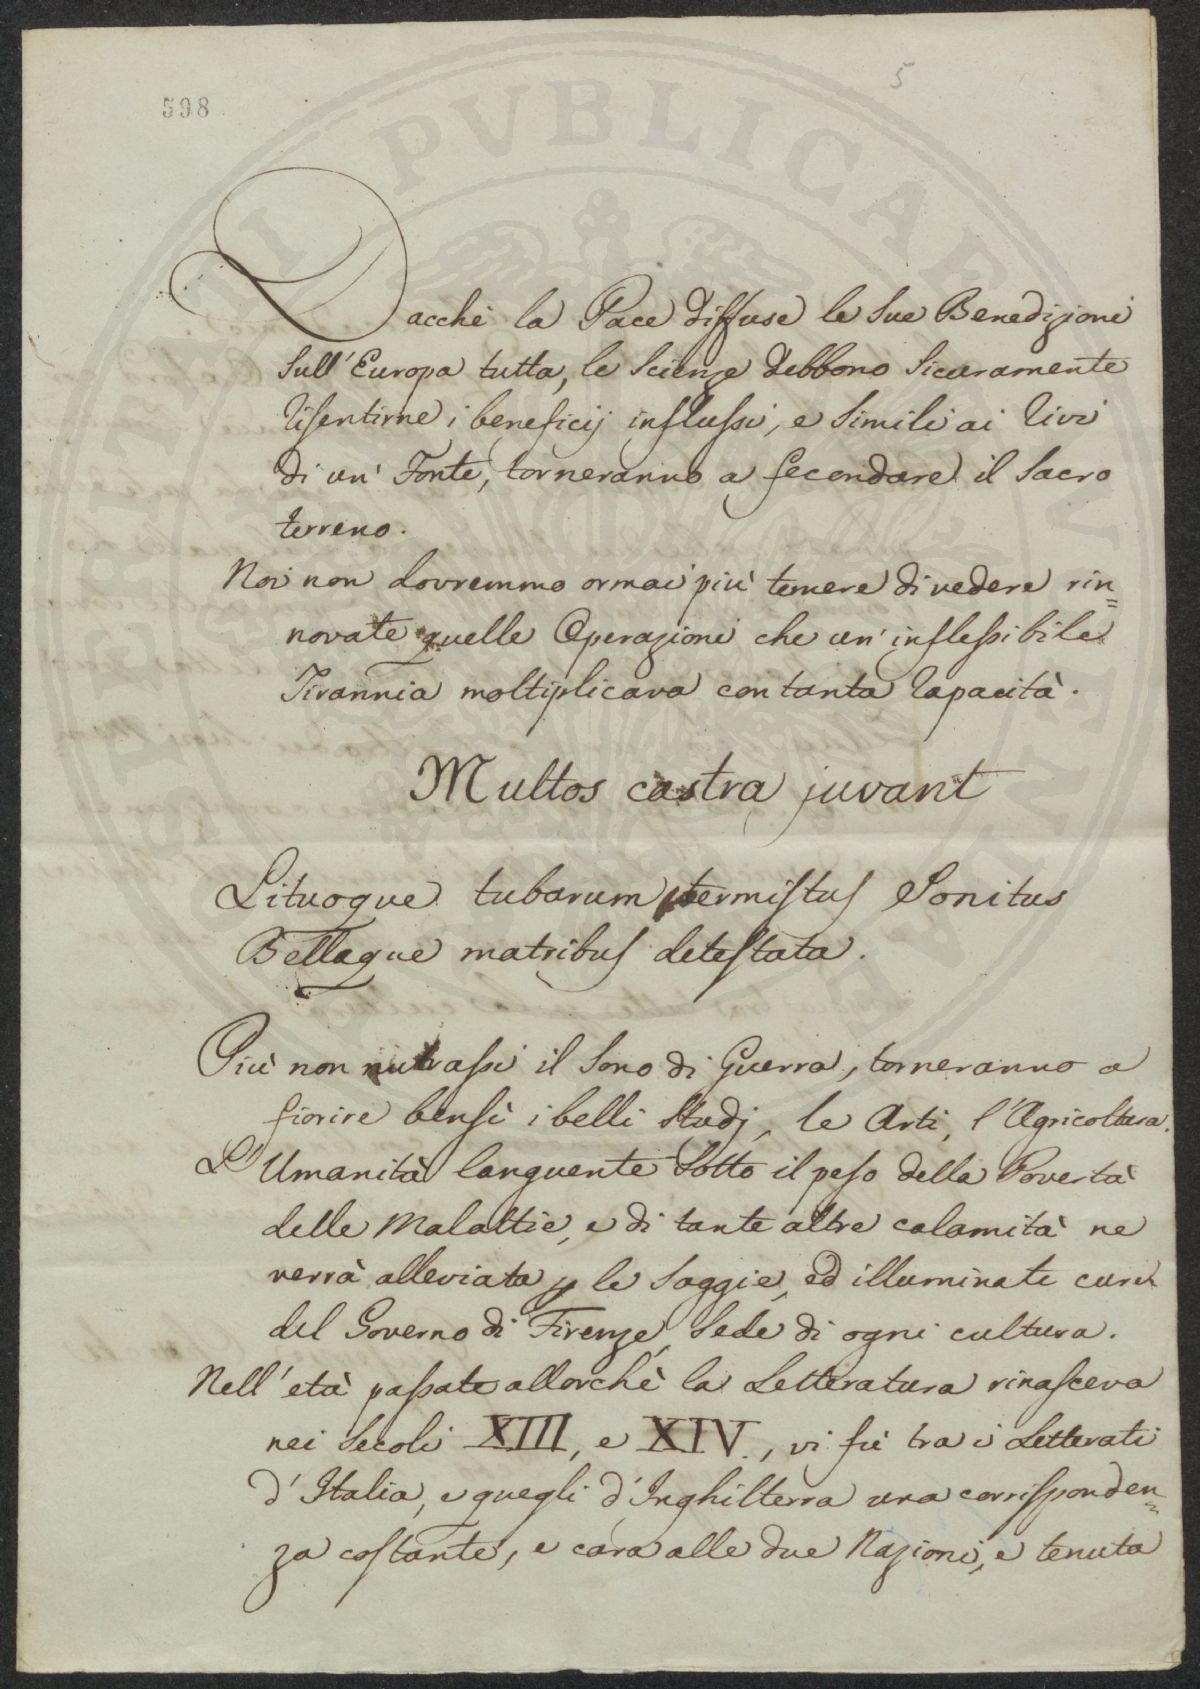 598
5
Dacchè la Pace diffuse le Sue Benedizioni
Sull' Europa tutta, le Scienze debbono Sicuramente
risentirne i beneficij influssi, e Simili ai rivi
di un' Fonte, torneranno a fecondare il Sacro
terreno.
Noi non dovremmo ormai più temere di vedere rin=
novate quelle Operazioni che un' inflessibile
Tirannia moltiplicava con tanta rapacità.
Multos castra juvant
Lituoque tubarum termistus Sonitus
Bellaque matribus detestata.
Più non il Sono di Guerra, torneranno a
fiorire bensì i belli Studj, le Arti, l'Agricoltura.
L' Umanità languente Sotto il peso della Povertà
delle Malattie, e di tante altre calamità ne
verrà alleviata p le Saggie, ed illuminate cure
del Governo di Firenze, Sede di ogni cultura.
Nell' età passate allorchè la Letteratura rinasceva
nei Secoli XIII, e XIV., vi fù tra i Letterati
d' Italia, e quegli d' Inghilterra una corrisponden=
za costante, e cara alle due Nazioni, e tenuta